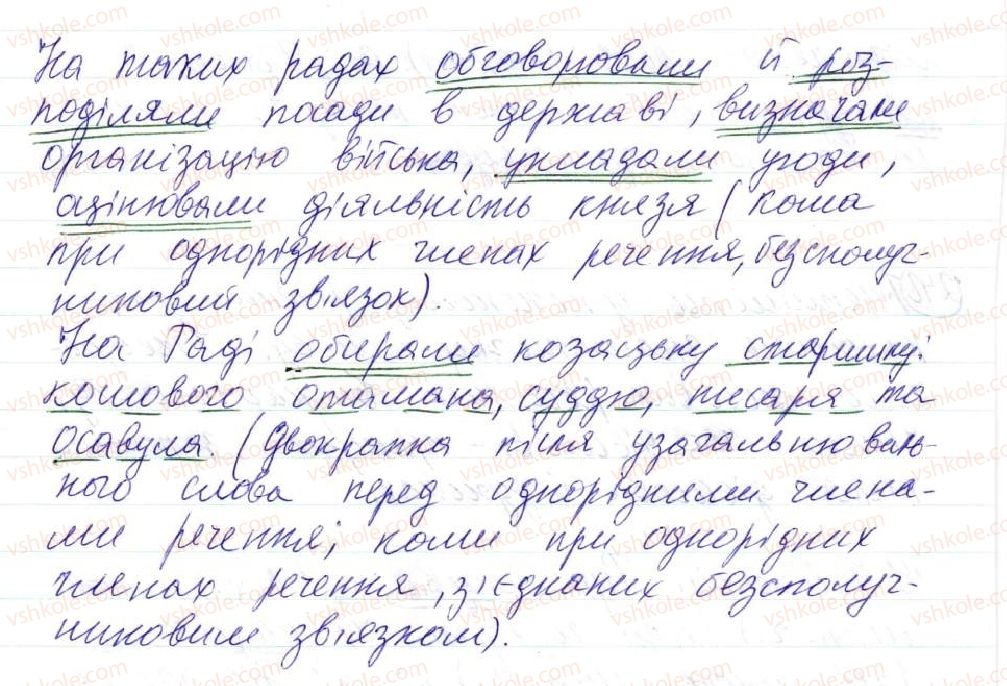 На таких радах обговорювали й роз-
поділяли посади в державі, визначали
організацію війська, укладали угоди,
оцінювали діяльність князя (кома
при однорідних членах речення, безсполуч-
никовий зв'язок).
На Раді обирали козацьку старшину:
кошового отамана, суддю, писаря та
осавула. (Двокрапка після узагальнюваль-
ного слова перед однорідними члена-
ми речення; коми при однорідних
членах речення, з'єднаних безсполуч-
никовим зв'язком).